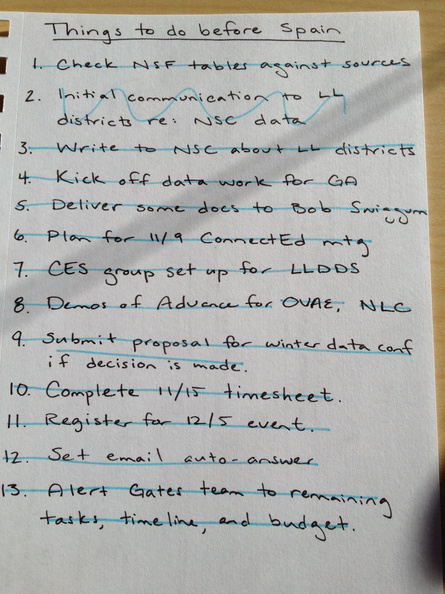 Things to do before Spain
1. Check NSF tables against sources
2. Initial communication to LL
districts re: NSC data
3. Write to NSC about LL districts
4. Kick off data work for GA
5. Deliver some docs to Bob Swiggum
6. Plan for 11/9 ConnectEd mtg
7. CES group set up for LLDDS
8. Demos of Advance for OVAE, NLC
9. Submit proposal for winter data conf
if decision is made.
10. Complete 11/15 timesheet.
11. Register for 12/5 event.
12. Set email auto-answer
13. Alert Gates team to remaining
tasks, timeline, and budget.